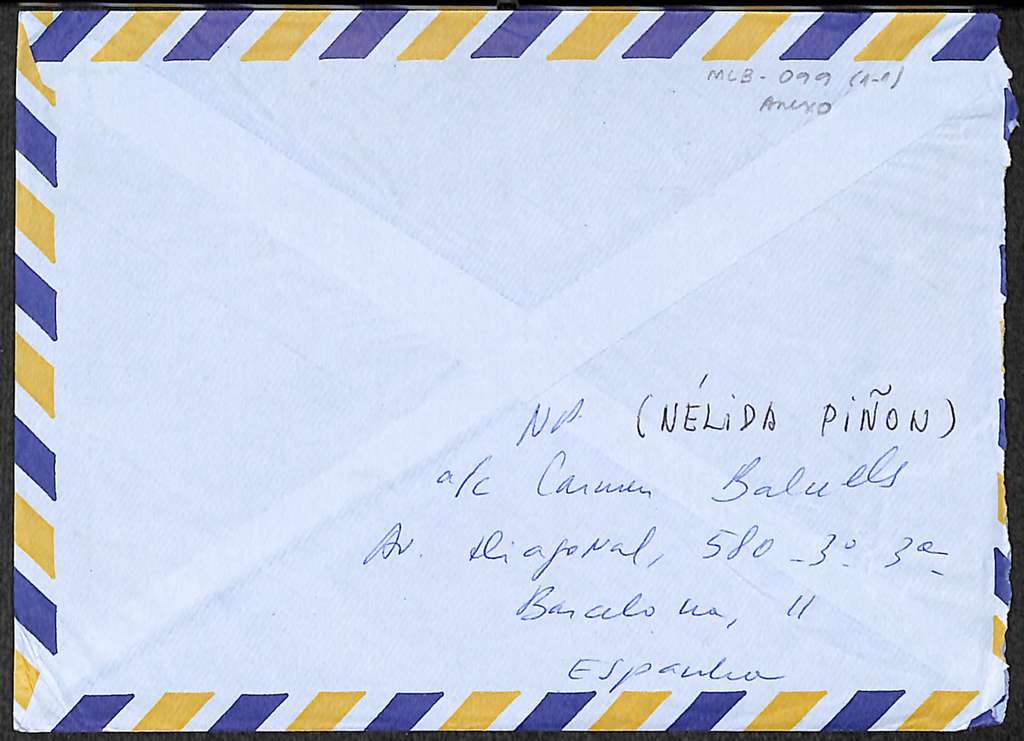 MLB-099 (1-1)
Anexo
NP. (NÉLIDA PIÑON)
a/c Carmen Balcells
Av. Diagonal, 580 - 3º 3ª
Barcelona, 11
Espanha